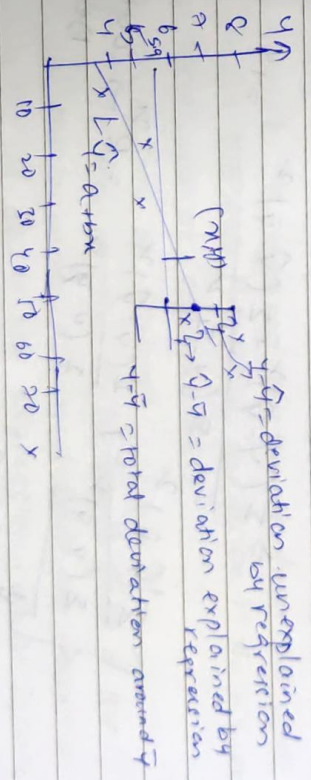 Y
8
7
6
5.9
5
4
(x,y)
y
ŷ
y-ŷ = deviation unexplained
by regression
ŷ-ȳ = deviation explained by
regression
y-ȳ = total deviation around ȳ
ŷ=a+bx
10 20 30 40 50 60 70 x